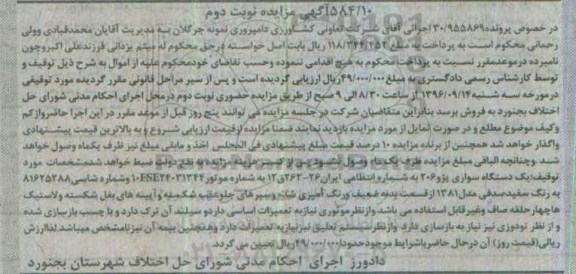 ۵۸۴/۱۰آگهی مزایده نوبت دوم
در خصوص پرونده۳۰/۹۵۵۸۶۹ اجرائی آقای شرکت تعاونی کشاورزی دامپروری نمونه جرگلان به مدیریت آقایان محمدقبادی وولی
رحمانی محکوم است به پرداخت به مبلغ ۱۱۸/۳۴۴/۲۵۲ ریال بابت اصل خواسته درحق محکوم له میثم یزدانی فرزندعلی اکبروچون
نامبرده درموعدمقرر نسبت به پرداخت محکوم به هیچ اقدامی ننموده وحسب تقاضای خودمحکوم علیه از اموال به شرح ذیل توقیف و
توسط کارشناس رسمی دادگستری به مبلغ ۴۹/۰۰۰/۰۰۰ریال ارزیابی گردیده است و پس از سیر مراحل قانونی مقرر گردیده مورد توقیفی
درمورخه سه شنبه۱۳۹۶/۰۹/۱۴از ساعت ۸/۳۰ الی ۹ صبح از طریق مزایده حضوری نوبت دوم درمحل اجرای احکام مدنی شورای حل
اختلاف بجنورد به فروش برسد بنابراین متقاضیان شرکت در جلسه مزایده می توانند پنج روز قبل از موعد مقرر در این اجرا حاضرواز کم
وکیف موضوع مطلع و در صورت تمایل از مورد مزایده بازدید نمایند ضمنا مزایده ازقیمت ارزیابی شروع و به بالاترین قیمت پیشنهادی
واگذار خواهد شد همچنین از برنده مزایده ۱۰ درصد قیمت مبلغ پیشنهادی فی المجلس اخذ و مابقی مبلغ نیز ظرف یکماه وصول خواهد
شد وچنانچه الباقی مبلغ مزایده ظرف یک ماه وصول نشود پس از کسر هزینه مزایده به نفع دولت ضبط خواهد شدمشخصات مورد
توقیف:یک دستگاه سواری پژو۲۰۶ به شماره انتظامی ایران۲۶-۲۶۳ق۱۲ به شماره موتور۱۰FSE۲۴۰۳۱۳۴۴ وشماره شاسی۸۱۶۲۵۳۸۸
به رنگ سفیدصدفی مدل۱۳۸۱ازقسمت بدنه ضعیف ورنگ آمیزی شده وسپرهای جلووعقب شکسته وآیینه های بغل شکسته ولاستیک
هاچهارحلقه صاف وغیرقابل استفاده می باشد وازنظرموتوری نیازبه تعمیرات اساسی داردو سیلند آن ترک دارد و با چسب بازسازی شده
و از نظر تودوزی نیز نیاز به بازسازی دارد وازنظرسیستم تعلیق نیزنیازبه تعمیرات دارد وهمچنین بیمه آن نیزنامشخص میباشد.لذاارزش
ریالی(قیمت روز) آن درحال حاضرباشرایط موجودحدودا۴۹/۰۰۰/۰۰۰ریال تعیین می گردد.
دادورز اجرای احکام مدنی شورای حل اختلاف شهرستان بجنورد